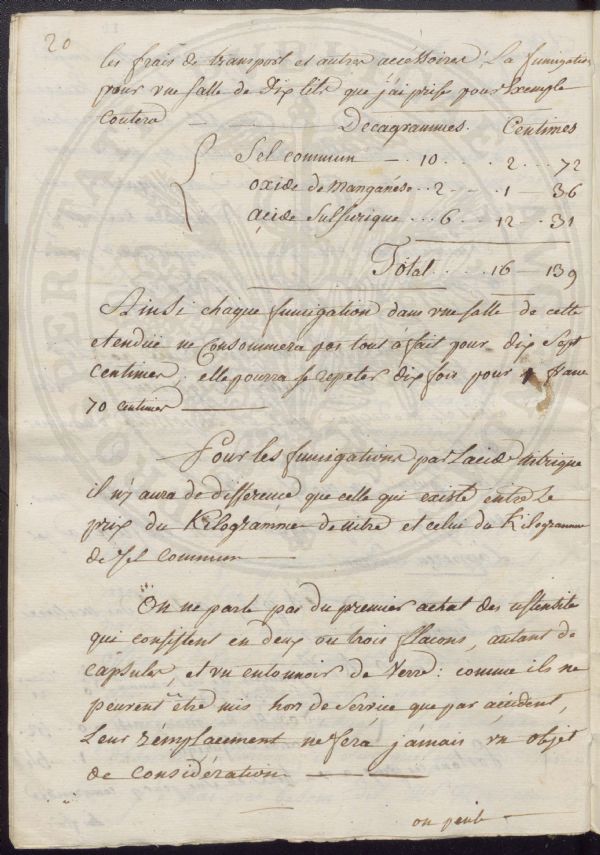 20
les frais de transport et autres accéssoires. La fumigation
pour une salle de dix lits que j'ai prise pour Exemple
Coutera — Decagrammes. Centimes
Sel commun — 10 ... 2 ... 72
oxide de manganése .. 2 ... 1 — 36
açide Sulfurique ... 6 ... 12 ... 31
Total .... 16 — 139
Ainsi chaque fumigation dans une salle de cette
etendue ne Consommera pas tout à fait pour dix Sept
Centimes; elle pourra se repeter dix fois pour 1 franc
70 centimes ———
Pour les fumigations par L'acide nitrique
il n'y aura de difference que celle qui existe entre Le
prix du Kilogramme de nitre et celui du Kilogramme
de Sel Commun —
On ne parle pas du premier achat des ustensiles
qui consistent en deux ou trois flacons, autant de
capsules, et un entonnoir de Verre: comme ils ne
peuvent être mis hors de Service que par accident,
Leur rémplacement ne sera jámais un objet
de considération ———
on peut